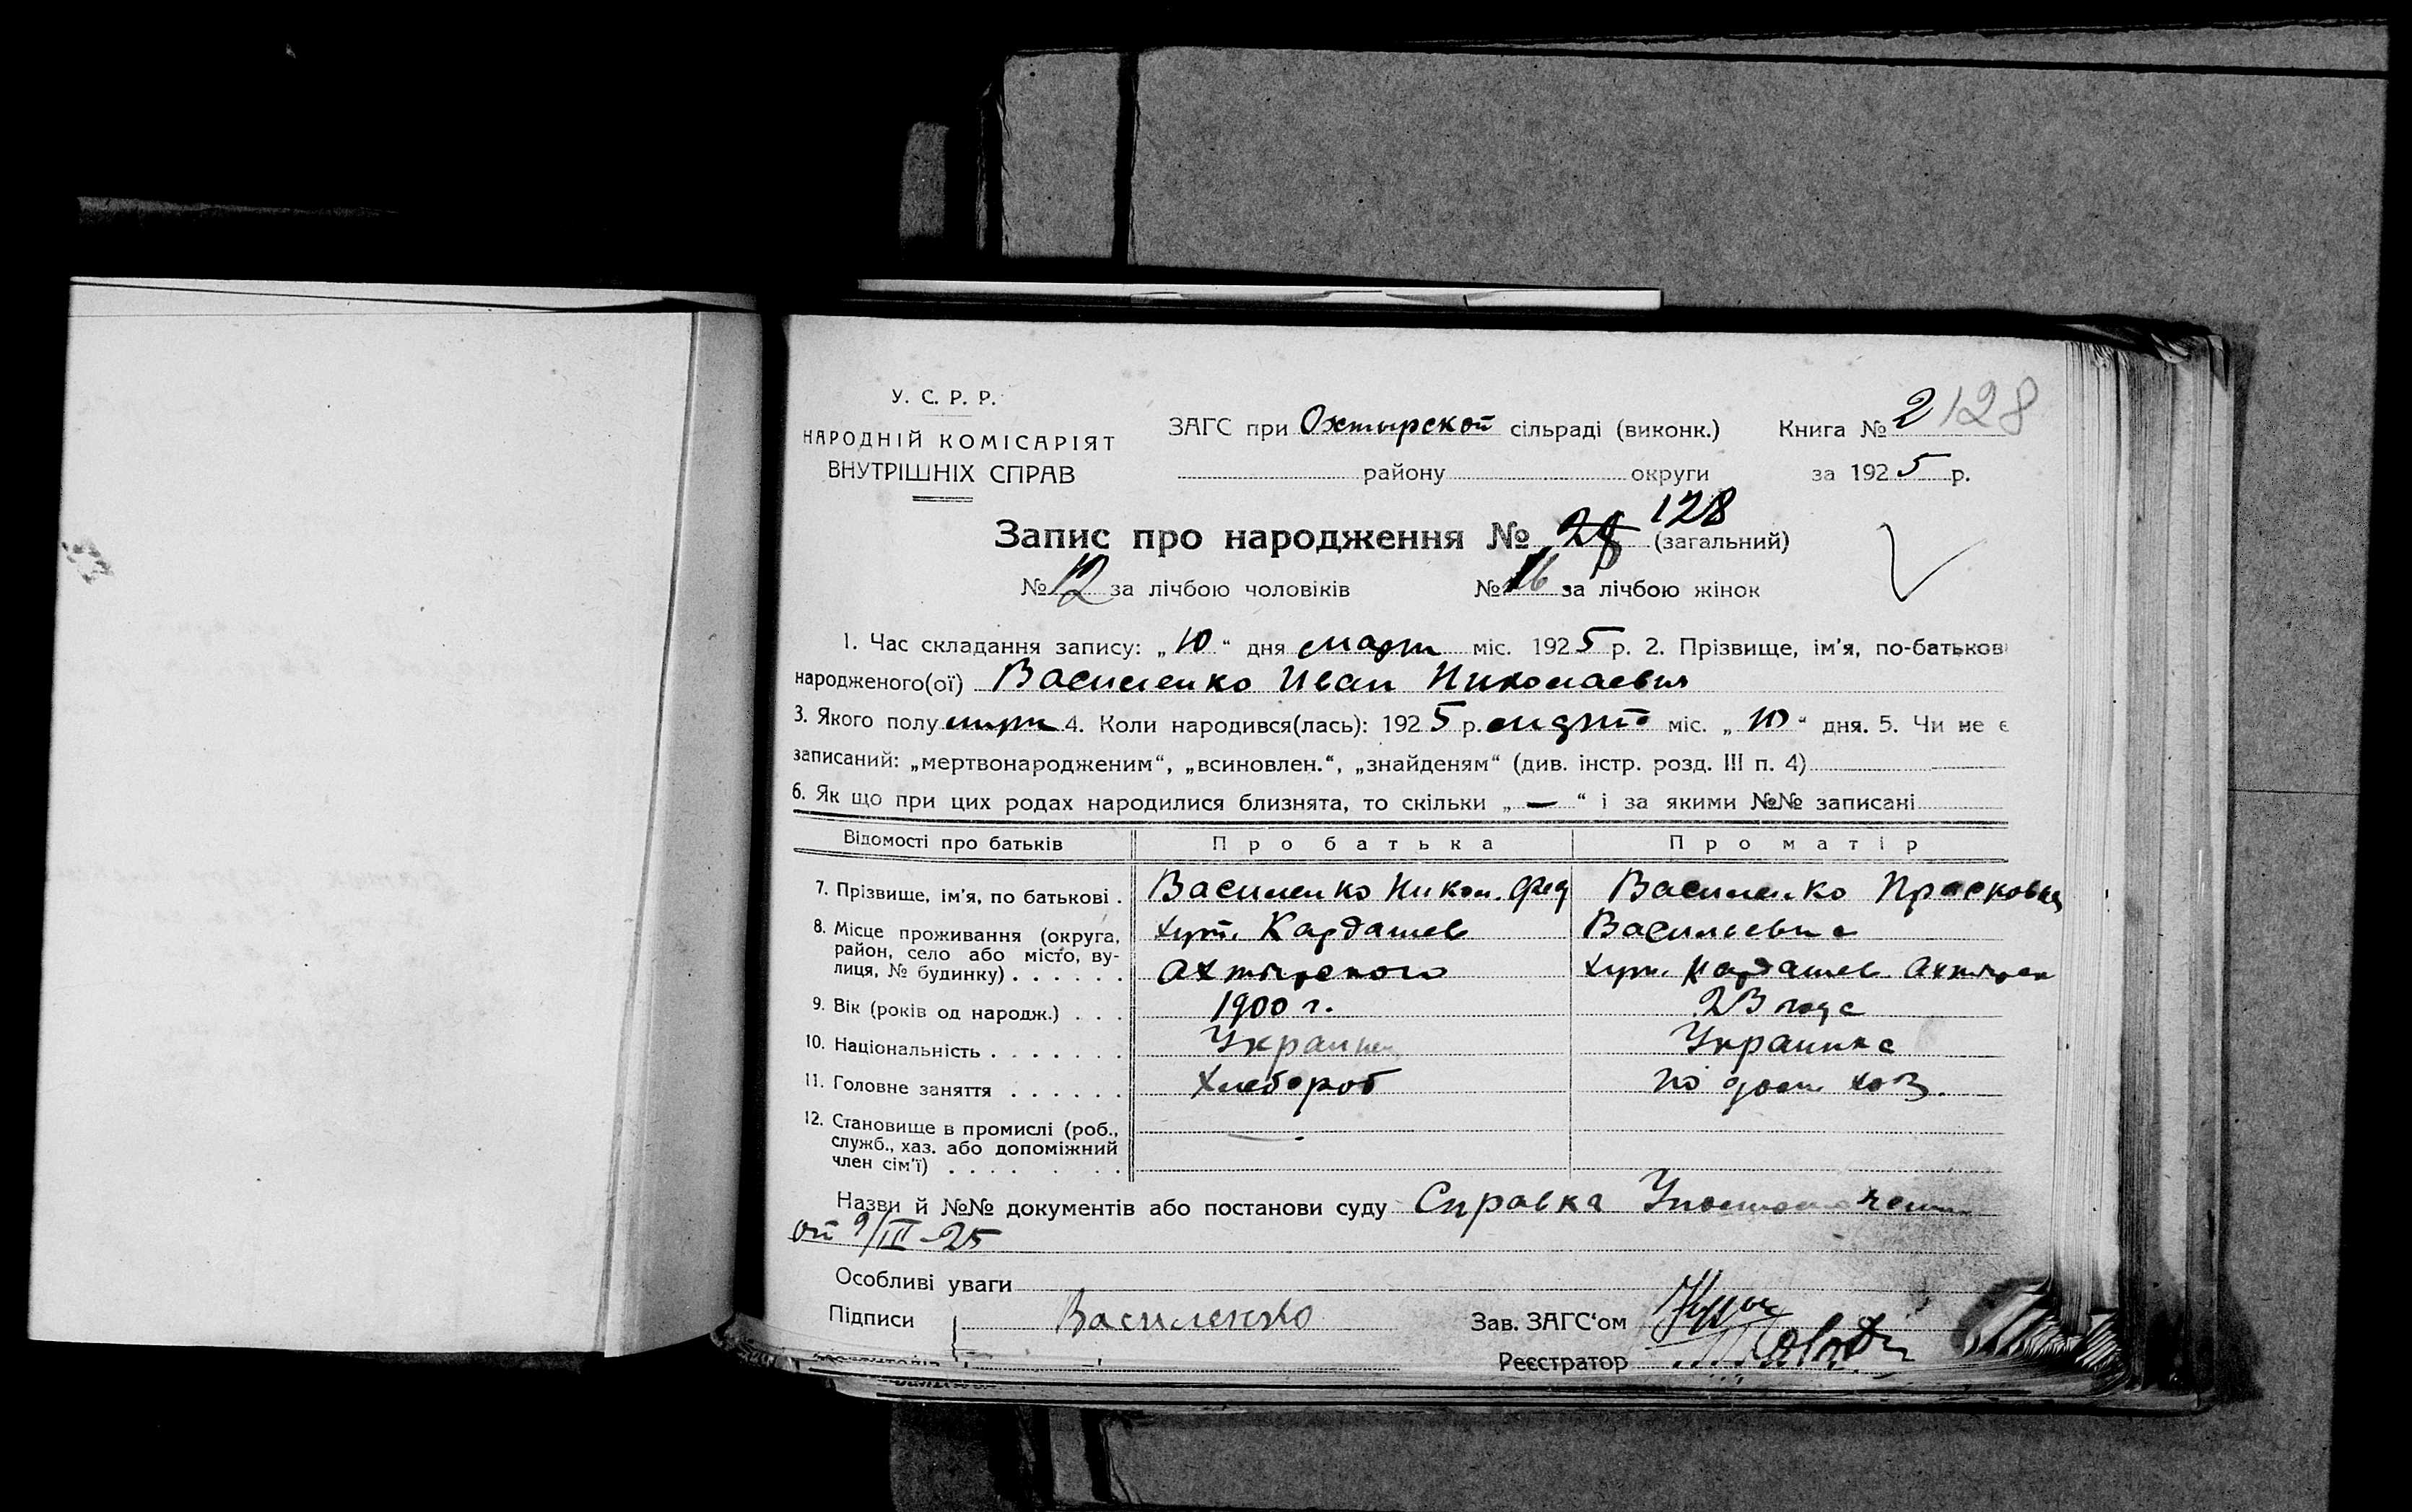 У. С. Р. Р.
НАРОДНІЙ КОМІСАРІЯТ
ВНУТРІШНІХ СПРАВ
ЗАГС при Охтырской сільраді (виконк.) Книга № 2 128
району округи за 1925 р.
Запис про народження № 28 128 (загальний)
№ 12 за лічбою чоловіків № 16 за лічбою жінок
1. Час складання запису: „10“ дня март міс. 1925 р. 2. Прізвище, ім'я, по-батькові
народженого(ої) Василенко Иван Николаевич
3. Якого полу 4. Коли народився(лась): 1925 р. марта міс. „10“ дня. 5. Чи не є
записаний: „мертвонародженим“, „всиновлен.“, „знайденям“ (див. інстр. розд. III п. 4)
6. Як що при цих родах народилися близнята, то скільки „—“ і за якими №№ записані
Відомості про батьків Про батька Про матір
7. Прізвище, ім'я, по батькові . Василенко Никол. Фед Василенко Прасковья
8. Місце проживання (округа, район, село або місто, вулиця, № будинку) . . . . . . хут. Кардашев Васильевна
Ахтырского хут. Кардашев Ахтырск
9. Вік (років од народж.) . . . 1900 г. 23 года
10. Національність . . . . . . . Украинец Украинка
11. Головне заняття . . . . . . Хлебороб по дом хоз.
12. Становище в промислі (роб., служб., хаз. або допоміжний член сім'ї) . . . . . . .
Назви й №№ документів або постанови суду Справка
от 9/III-25
Особливі уваги
Підписи Василенко Зав. ЗАГС'ом
Реєстратор